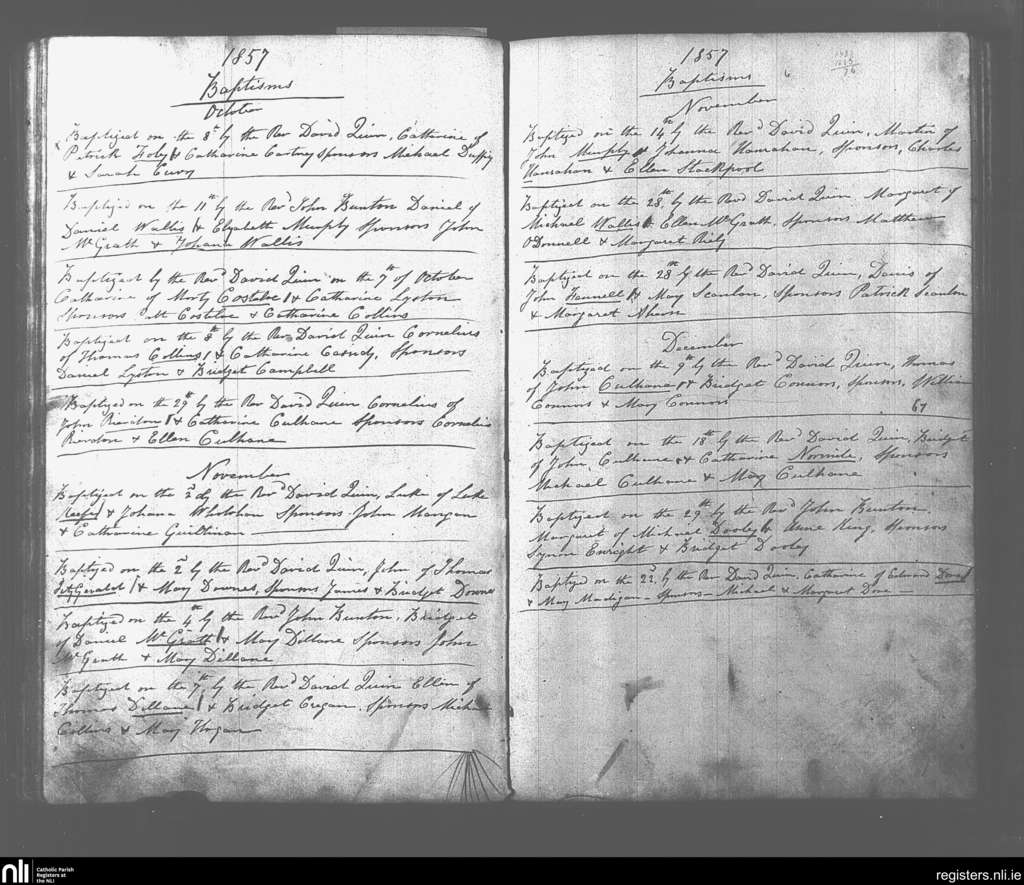 1857
Baptisms
October
Baptized on the 8th by the Revd David Quin, Catherine of
Patrick Foley & Catharine Cartney Sponsors Michael Duffy
& Sarah Curry
Baptized on the 11th by the Revd John Bunton Daniel of
Daniel Wallis & Elizabeth Murphy Sponsors John
McGrath & Johana Wallis
Baptized by the Revd David Quin on the 7th of October
Catharine of Morty Costeloe & Catharine Lyston
Sponsors Mt Costeloe & Catharine Collins
Baptized on the 8th by the Revd David Quin Cornelius
of Thomas Collins & Catharine Casudy, Sponsors
Daniel Lyston & Bridget Campbell
Baptized on the 29th by the Revd David Quin Cornelius of
John Riordon & Catharine Culhane Sponsors Cornelius
Riordon & Ellen Culhane
November
Baptized on the 2d by the Revd David Quin, Luke of Luke
Keeffe & Johana Whelehan Sponsors John Mangan
& Catharine Guiltinan
Baptized on the 2d by the Revd David Quin, John of Thomas
FitzGerald & Mary Downes, Sponsors James & Bridget Downes
Baptized on the 4th by the Revd John Bunton, Bridget
of Daniel McGrath & Mary Dillane Sponsors John
McGrath & Mary Dillane
Baptized on the 7th by the Revd David Quin Ellen of
Thomas Dillane & Bridget Cregan, Sponsors Michael
Collins & Mary Hogan
1857
Baptisms
November
Baptized on the 14th by the Revd David Quin, Martin of
John Murphy & Johanna Hanrahan, Sponsors, Charles
Hanrahan & Ellen Stackpool
Baptized on the 28th by the Revd David Quin, Margaret of
Michael Wallis & Ellen McGrath, Sponsors Matthew
ODonnell & Margaret Riely
Baptized on the 28th by the Revd David Quin, Denis of
John Fennell & Mary Scanlon, Sponsors Patrick Scanlon
& Margaret Ahern
December
Baptized on the 9th by the Revd David Quin, Thomas
of John Culhane & Bridget Connors, Sponsors, William
Connors & Mary Connors
67
Baptized on the 18th by the Revd David Quin, Bridget
of John, Culhane & Catharine Normile, Sponsors
Michael Culhane & Mary Culhane
Baptized on the 29th by the Revd John Bunton,
Margaret of Michael Dooley & Anne King, Sponsors
Synon Enright & Bridget Dooley
Baptized on the 22d by the Revd David Quin, Catharine of Edward Dore
& Mary Madigan - Sponsors - Michael & Margaret Dore
nli
Catholic Parish
Registers at
the NLI
registers.nli.ie